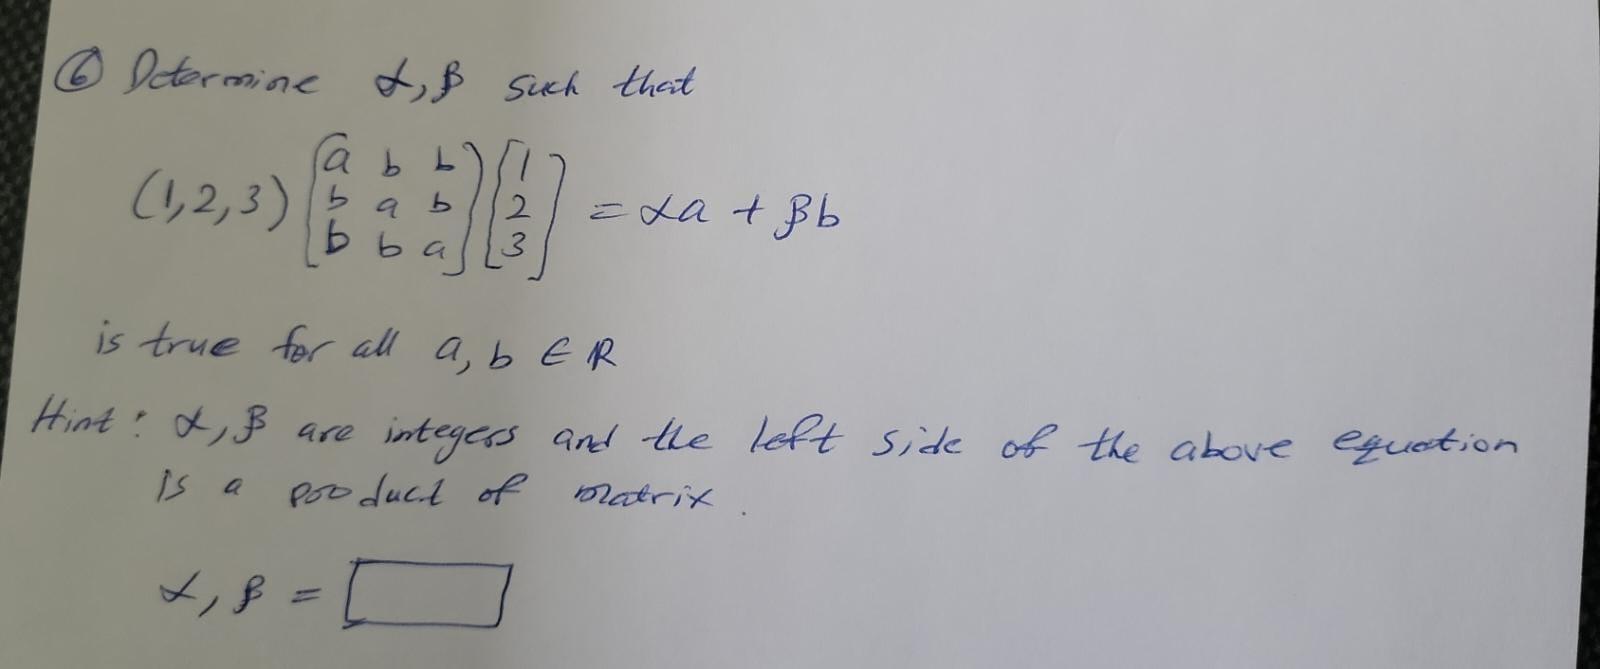 ⑥ Determine α, β such that
(1,2,3) [a b b] [1]
[b a b] [2] = αa + βb
[b b a] [3]
is true for all a, b ∈ ℝ
Hint: α, β are integers and the left side of the above equation
is a product of matrix.
α, β =